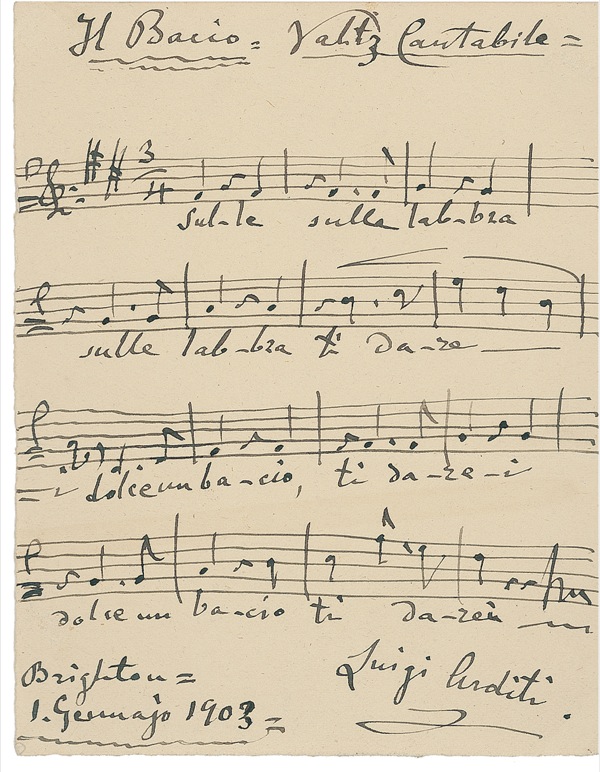 Il Bacio = Valtz Cantabile =
3
4
sul-le sulle lab-bra
sulle lab-bra ti da-re
i dolce un ba-cio, ti da-re-i
dolce un ba-cio ti da-rei
Brighton =
1. Gennajo 1903 =
Luigi Arditi.